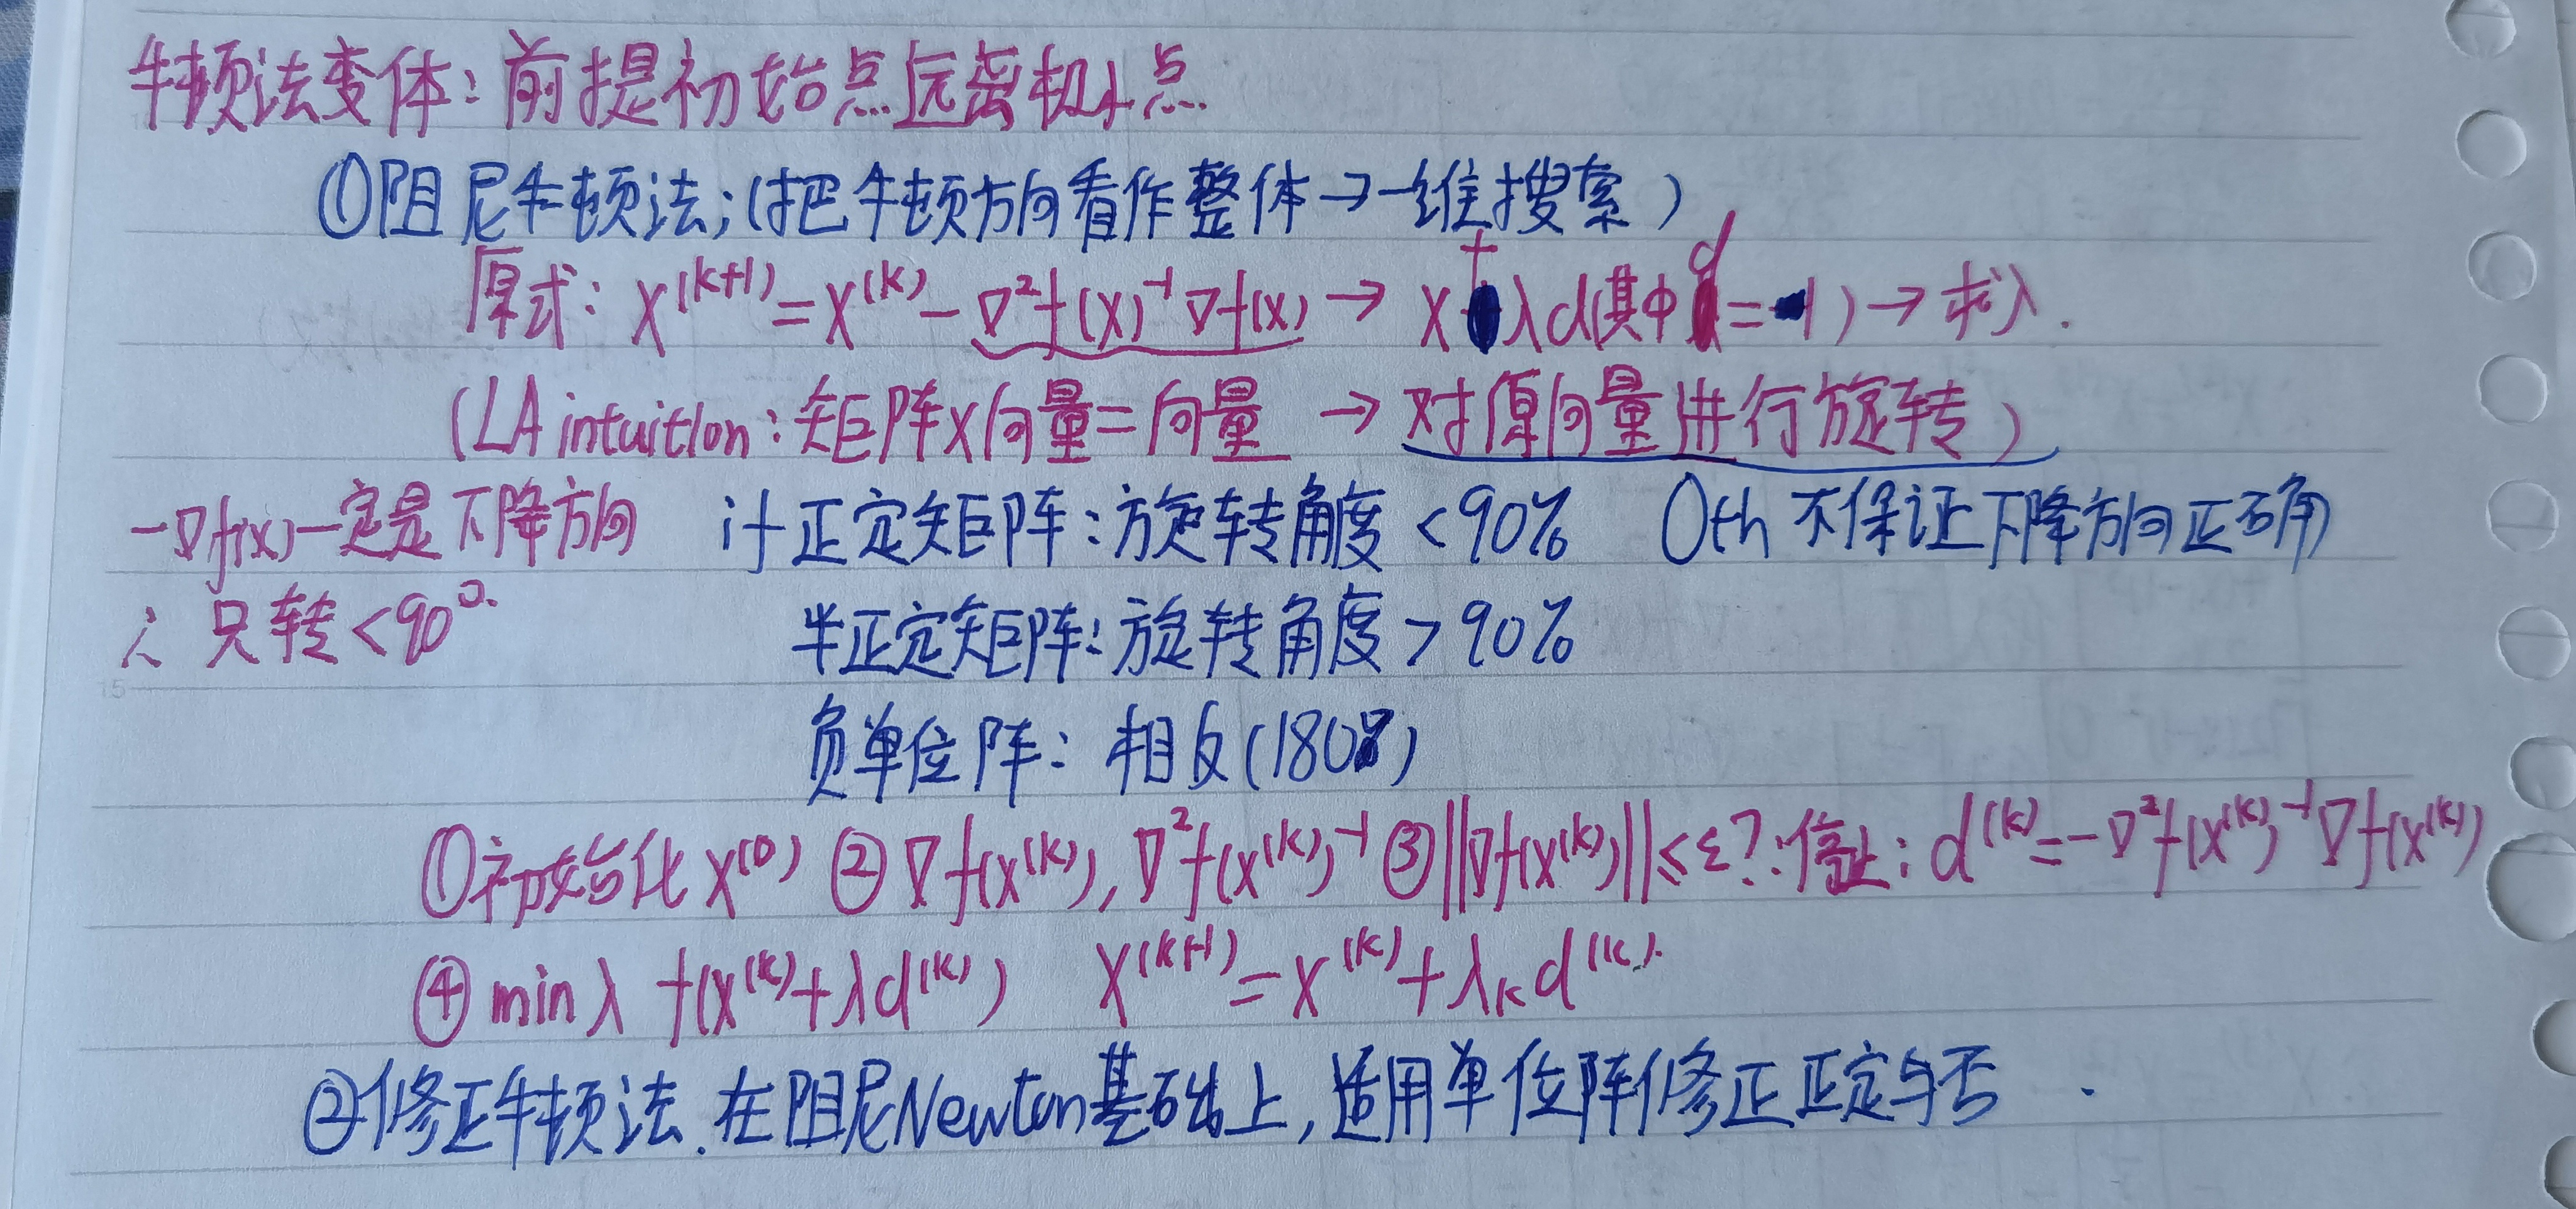 牛顿法变体：前提初始点远离极小点
①阻尼牛顿法；(把牛顿方向看作整体→一维搜索)
原式：X^(k+1)=X^(k)-∇²f(X)^-1∇f(x)→X+λd(其中d=-1)→求λ.
(LA intuition：矩阵×向量=向量→对原向量进行旋转)
-∇f(x)一定是下降方向 计正定矩阵：旋转角度<90% Oth 不保证下降方向正确
∴只转<90°. 半正定矩阵：旋转角度>90%
负单位阵：相反(180)
①初始化X^(0) ②∇f(x^(k)),∇²f(x^(k))^-1 ③||∇f(x^(k))||≤ε?:停止：d^(k)=-∇²f(X^(k))^-1∇f(x^(k))
④minλ f(x^(k)+λd^(k)) X^(k+1)=X^(k)+λ_k d^(k).
②修正牛顿法.在阻尼Newton基础上,适用单位阵修正正定与否.